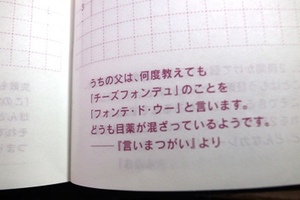 うちの父は、何度教えても
「チーズフォンデュ」のことを
「フォンテ・ド・ウー」と言います。
どうも目薬が混ざっているようです。
――『言いまつがい』より